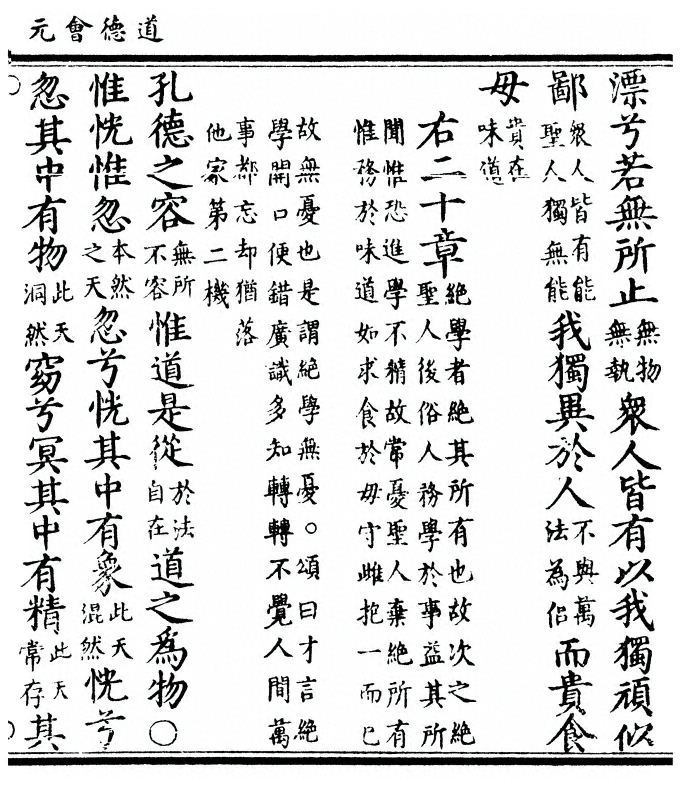 道德會元
漂兮若無所止無物無執衆人皆有以我獨頑似
鄙衆人皆有能聖人獨無能我獨異於人不與萬法為侶而貴食
母貴在味道
右二十章絕學者絕其所有也故次之絕
聖人後俗人務學於事益其所
聞惟恐進學不精故常憂聖人棄絕所有
惟務於味道如求食於母守雌抱一而已
故無憂也是謂絕學無憂。頌曰才言絕
學開口便錯廣識多知轉轉不覺人間萬
事都忘却猶落
他家第二機
孔德之容無所不容惟道是從於法自在道之為物〇
惟恍惟忽本然之天忽兮恍其中有象此天混然恍兮
忽其中有物此天洞然窈兮冥其中有精此天常存其